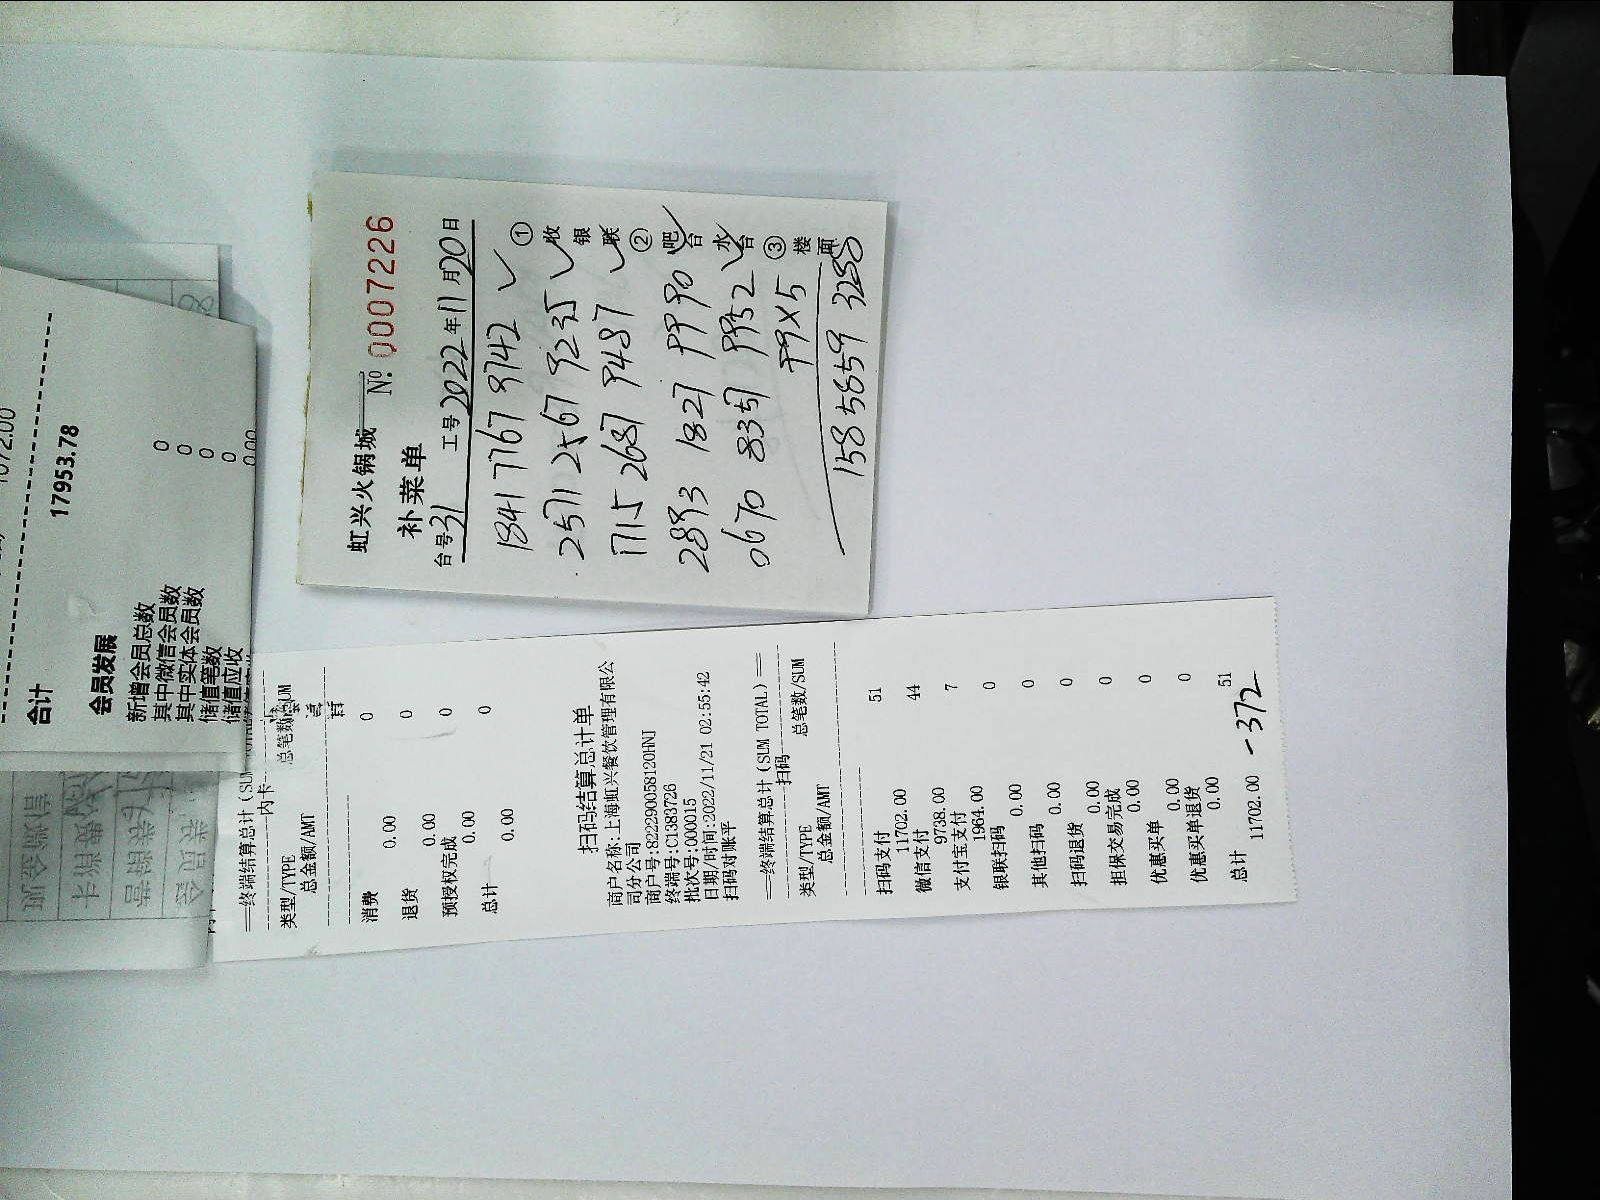 合计
17953.78
会员发展
新增会员总数 0
其中微信会员数 0
其中实体会员数 0
储值笔数 0
储值应收 0.00
虹兴火锅城 № 0007226
补菜单
台号 31 工号 2022年11月20日
1841 7767 8742
2571 2567 9235
1715 2687 9487
2893 1827 PP90
0670 8357 PP52
PP×5
158 5859 3280
①收银联
②吧台水台
③楼面
内卡
类型/TYPE 总笔数/SUM
总金额/AMT
消费 0
0.00
退货 0
0.00
预授权完成 0
0.00
总计 0
0.00
扫码结算总计单
商户名称:上海虹兴餐饮管理有限公
司分公司
商户号:82229005812OHNJ
终端号:C1383726
批次号:000015
日期/时间:2022/11/21 02:55:42
扫码对账平
==终端结算总计(SUM TOTAL)==
扫码
类型/TYPE 总笔数/SUM
总金额/AMT
扫码支付 51
11702.00
微信支付 44
9738.00
支付宝支付 7
1964.00
银联扫码 0
0.00
其他扫码 0
0.00
扫码退货 0
0.00
担保交易完成 0
0.00
优惠买单 0
0.00
优惠买单退货 0
0.00
总计 51
11702.00 -372